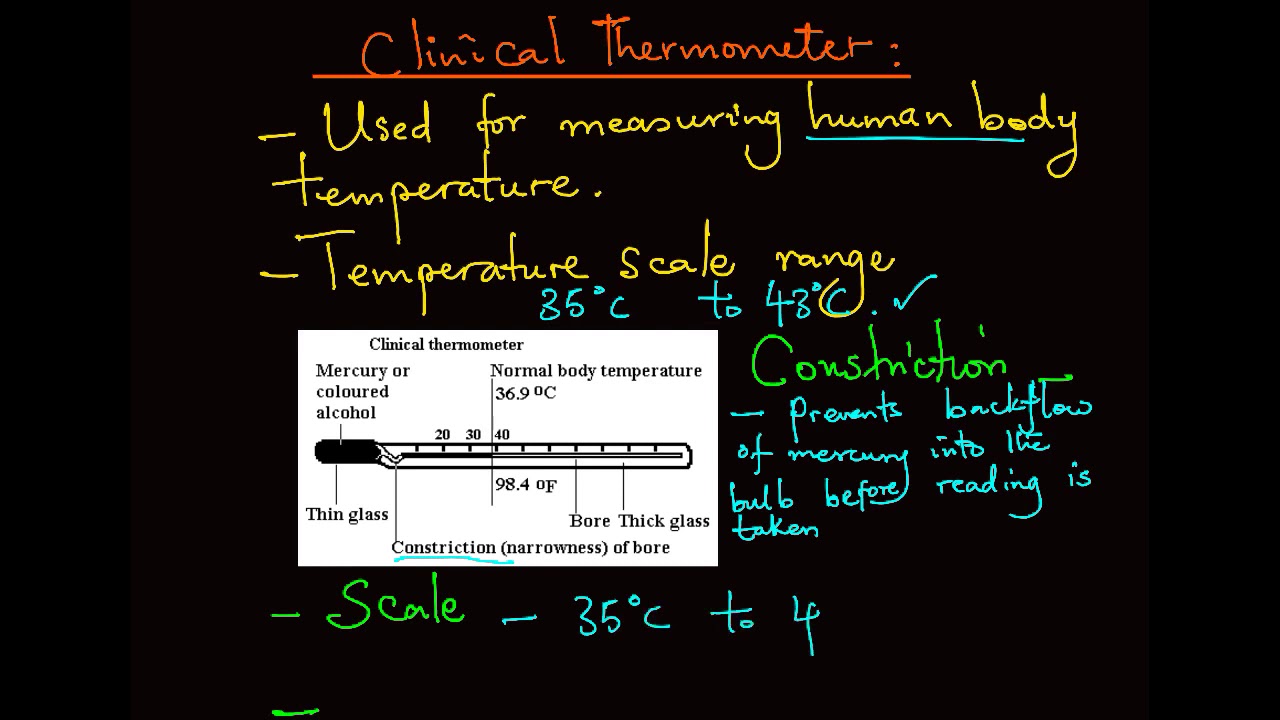 Clinical Thermometer:
- Used for measuring human body
temperature.
- Temperature scale range
35°C to 43°C. ✓
Clinical thermometer
Mercury or
coloured
alcohol
Normal body temperature
36.9 ºC
20 30 40
98.4 ºF
Thin glass
Bore Thick glass
Constriction (narrowness) of bore
Constriction
- Prevents backflow
of mercury into the
bulb before reading is
taken
- Scale - 35°C to 4
-